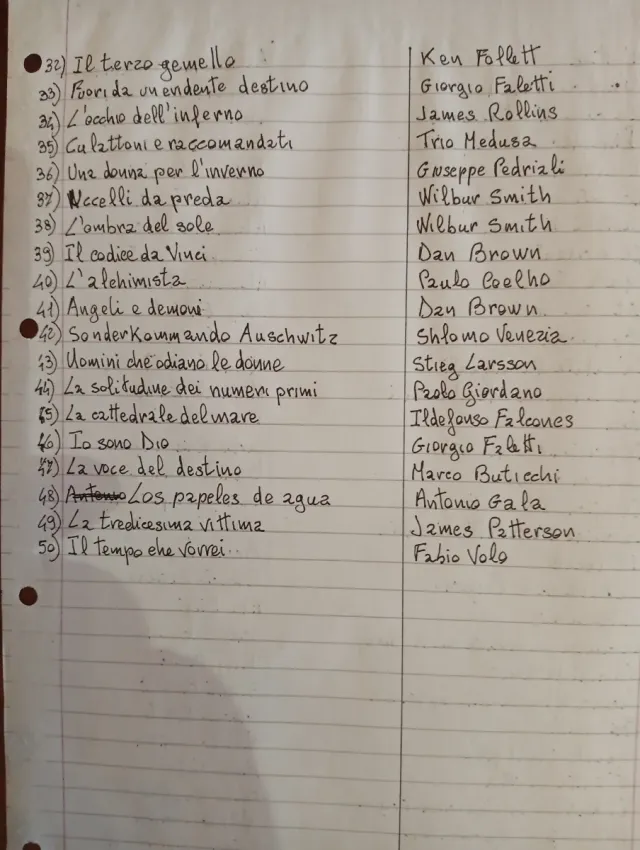 32) Il terzo gemello Ken Follett
33) Fuori da un evidente destino Giorgio Faletti
34) L'occhio dell'inferno James Rollins
35) Culattoni e raccomandati Trio Medusa
36) Una donna per l'inverno Giuseppe Pedriali
37) Uccelli da preda Wilbur Smith
38) L'ombra del sole Wilbur Smith
39) Il codice da Vinci Dan Brown
40) L'alchimista Paulo Coelho
41) Angeli e demoni Dan Brown
42) Sonderkommando Auschwitz Shlomo Venezia
43) Uomini che odiano le donne Stieg Larsson
44) La solitudine dei numeri primi Paolo Giordano
45) La cattedrale del mare Ildefonso Falcones
46) Io sono Dio Giorgio Faletti
47) La voce del destino Marco Buticchi
48) Antonio Los papeles de agua Antonio Gala
49) La tredicesima vittima James Patterson
50) Il tempo che vorrei Fabio Volo